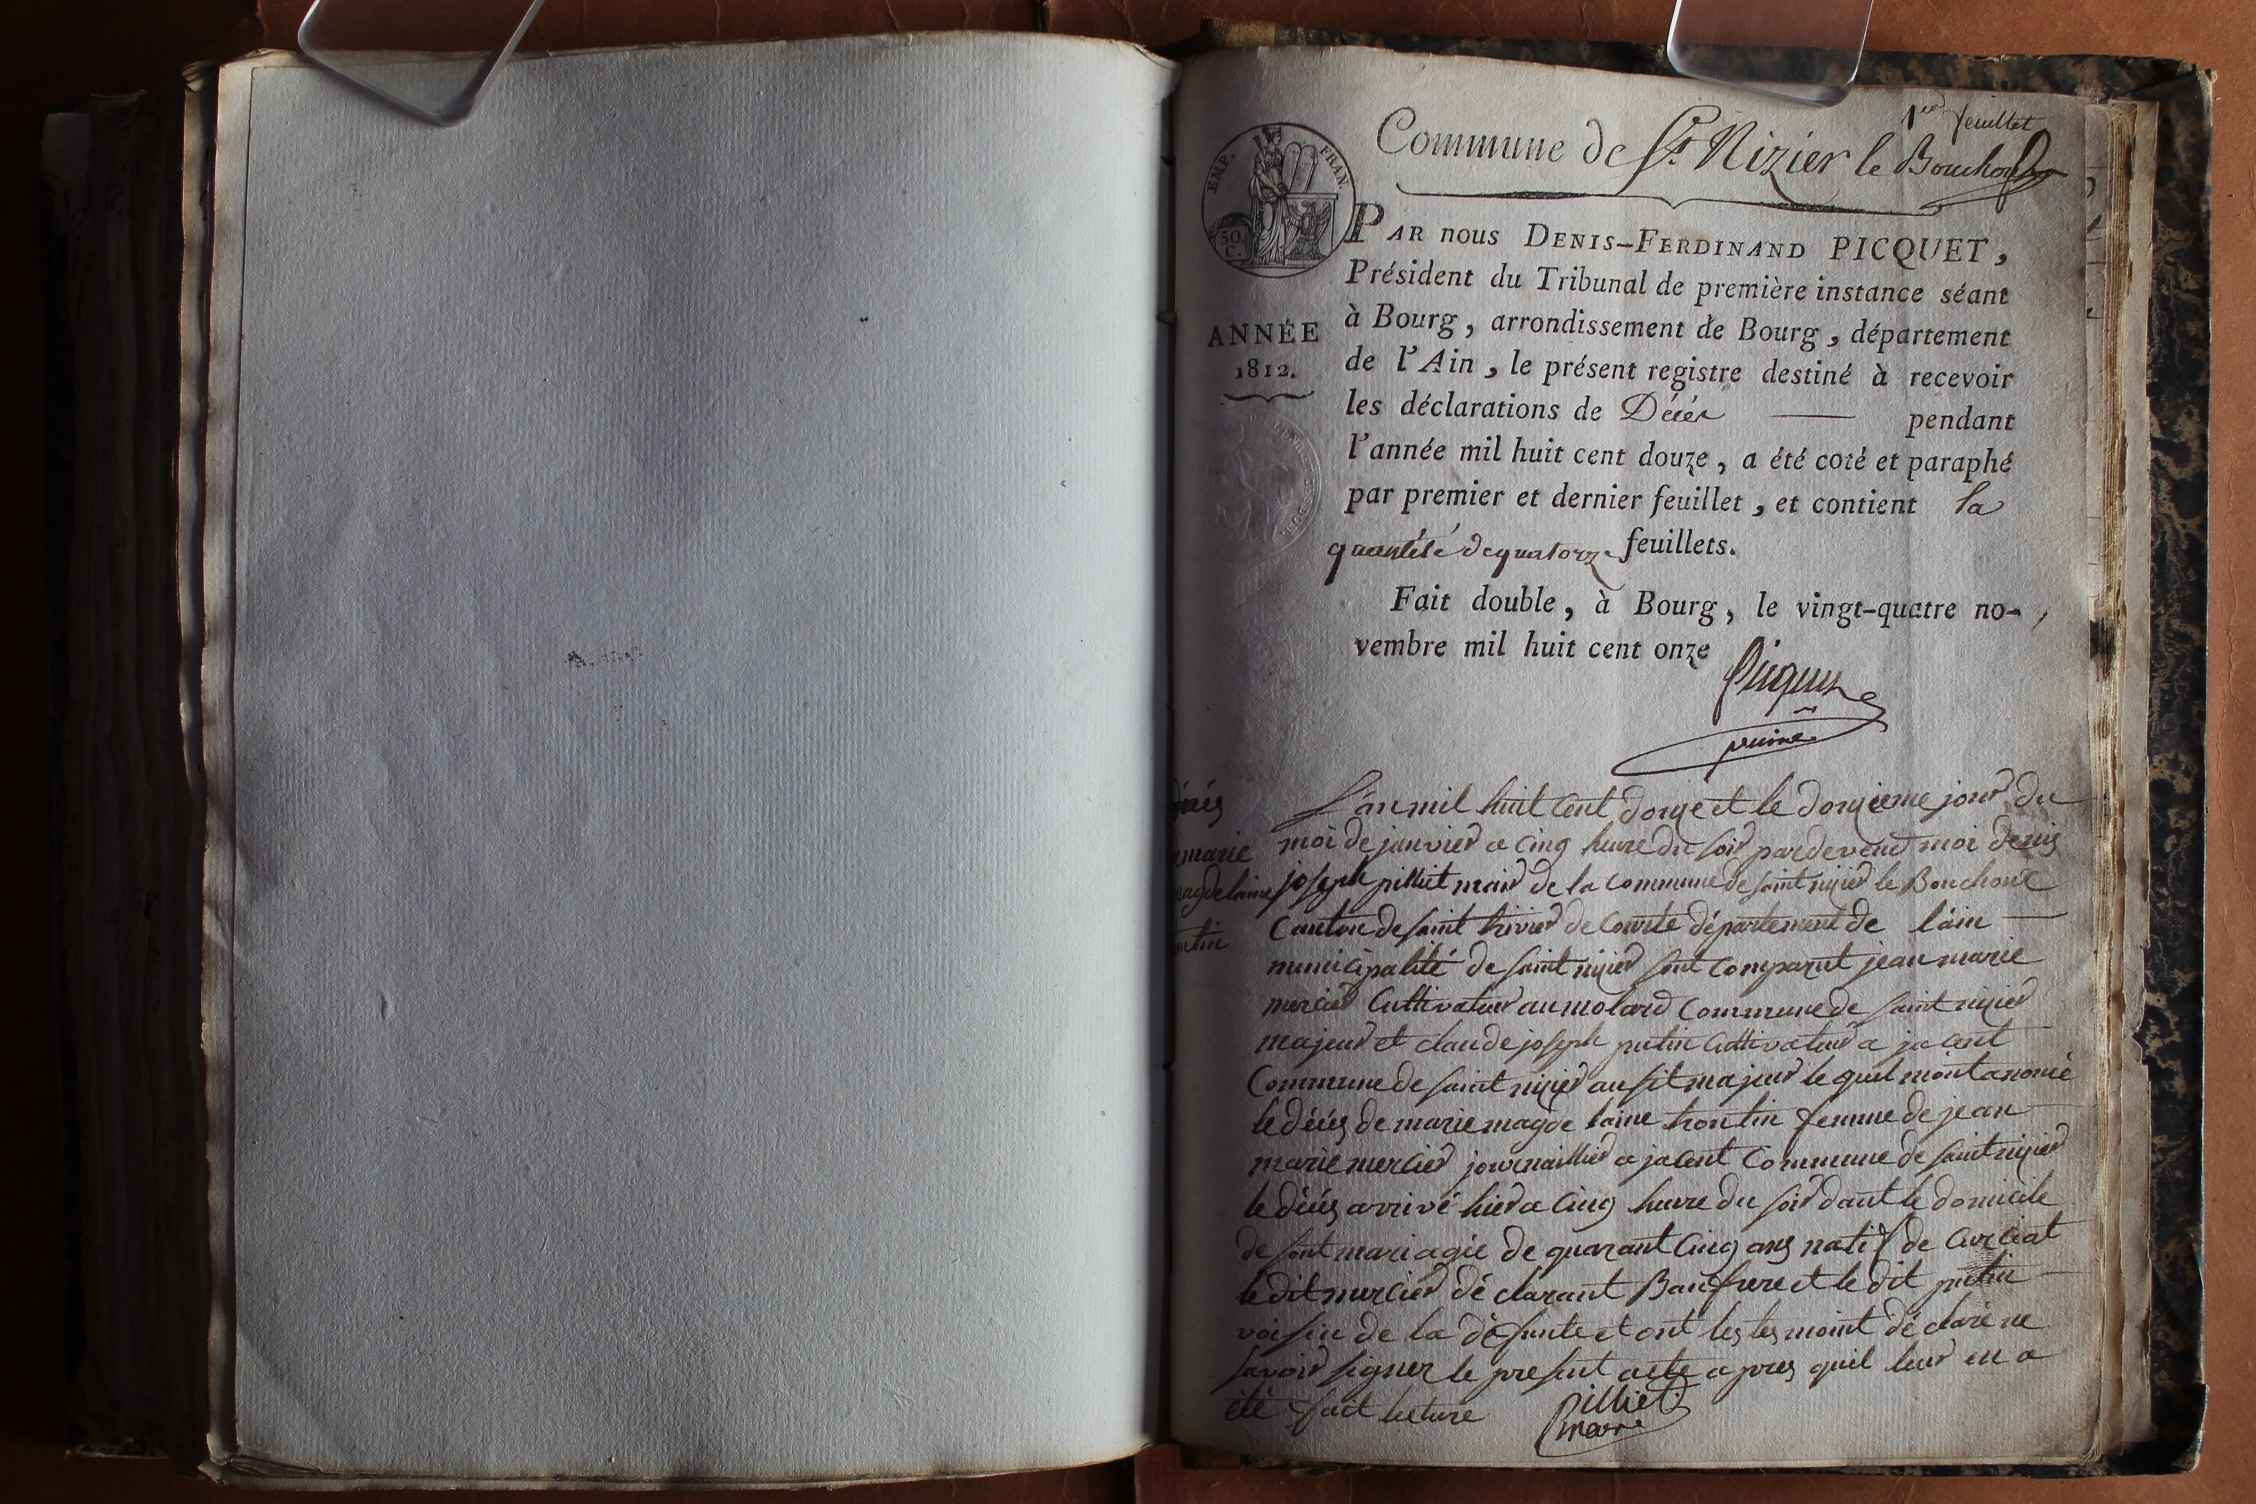 1er feuillet
Commune de St Nizier le Bouchoux
EMP. FRAN.
50 C.
PAR nous DENIS-FERDINAND PICQUET,
Président du Tribunal de première instance séant
à Bourg, arrondissement de Bourg, département
de l'Ain, le présent registre destiné à recevoir
les déclarations de Décès pendant
l'année mil huit cent douze, a été coté et paraphé
par premier et dernier feuillet, et contient la
quantité de quatorze feuillets.
Fait double, à Bourg, le vingt-quatre no-
vembre mil huit cent onze
ANNÉE
1812.
Picquet
décés
marie
magdelaine
L'an mil huit cent douze et le douzieme jour du
moi de janvier a cinq heure du soir pardevant moi denis
joseph pilliet maire de la commune de saint nizier le Bouchoux
Canton de saint trivier de Courte département de l'ain
municipalité de saint nizier sont comparut jean marie
mercier Cultivateur au molard commune de saint nizier
majeur et claude joseph putin Cultivateur a jacent
Commune de saint nizier ausit majeur le quel mont anoncé
le décés de marie magdelaine femme de jean
marie mercier journaillier a jacent Commune de saint nizier
le décés arrivé hier a cinq heure du soir dant le domicile
de sont mari agée de quarant cinq ans natif de Curciat
le dit mercier déclarant Baufrere et le dit putin
voisin de la défunte et ont les tesmoint déclaré ne
savoir signer le present acte apres quil leur en a
été fait lecture pilliet
maire